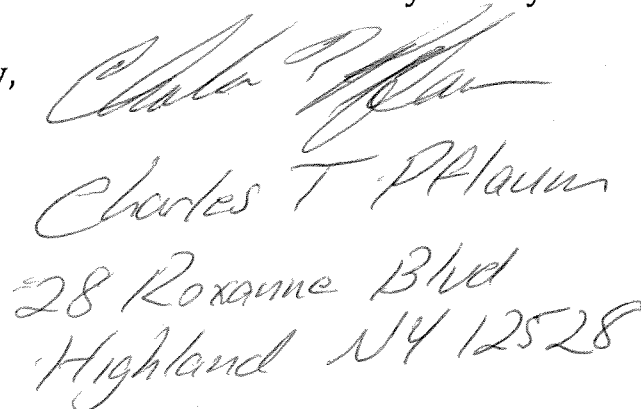 y,
Charles T Pflaum
Charles T Pflaum
28 Roxanne Blvd
Highland NY 12528